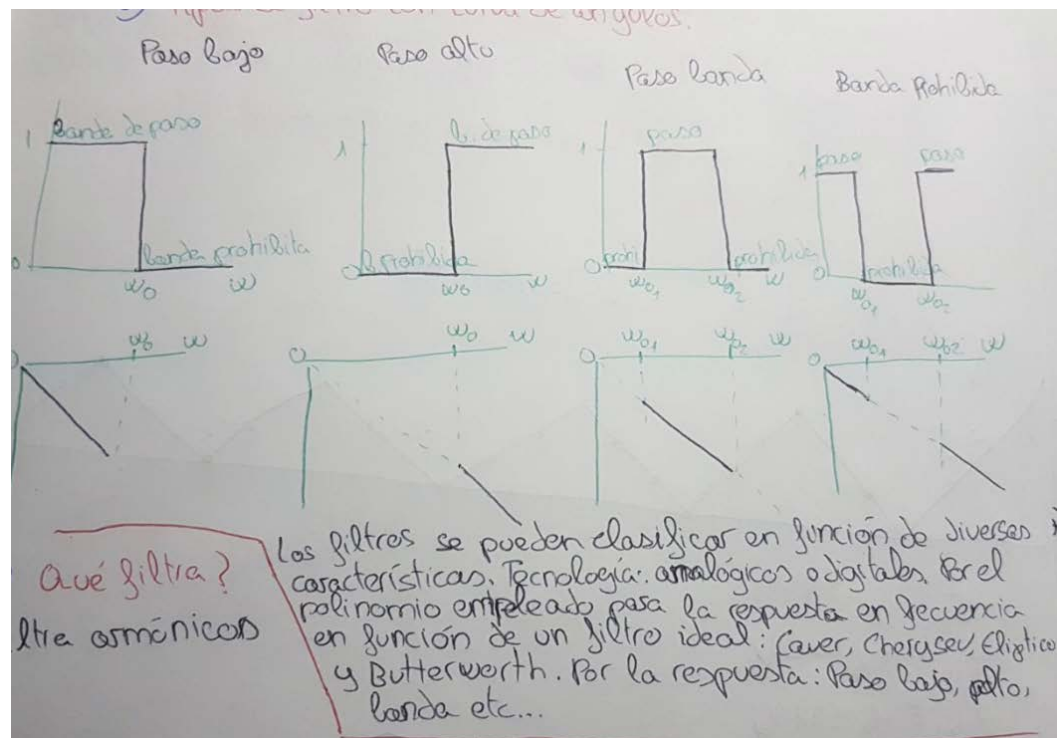 Paso bajo
Paso alto
Paso banda
Banda Prohibida
1 Banda de paso
0 banda prohibita
ω0 ω
1 b. de paso
0 b prohibida
ω0 ω
1 paso
0 prohi prohibida
ω01 ω02 ω
1 paso paso
0 prohibida
ω01 ω02
0 ω0 ω
0 ω0 ω
0 ω01 ω02 ω
0 ω01 ω02 ω
Qué filtra?
ltra armónicos
Los filtros se pueden clasificar en función de diverses
características. Tecnología: analógicos o digitales. Por el
polinomio empeleado para la respuesta en frecuencia
en función de un filtro ideal: Cauer, Cherysev, Elíptico
y Butterworth. Por la respuesta: Paso bajo, alto,
banda etc...